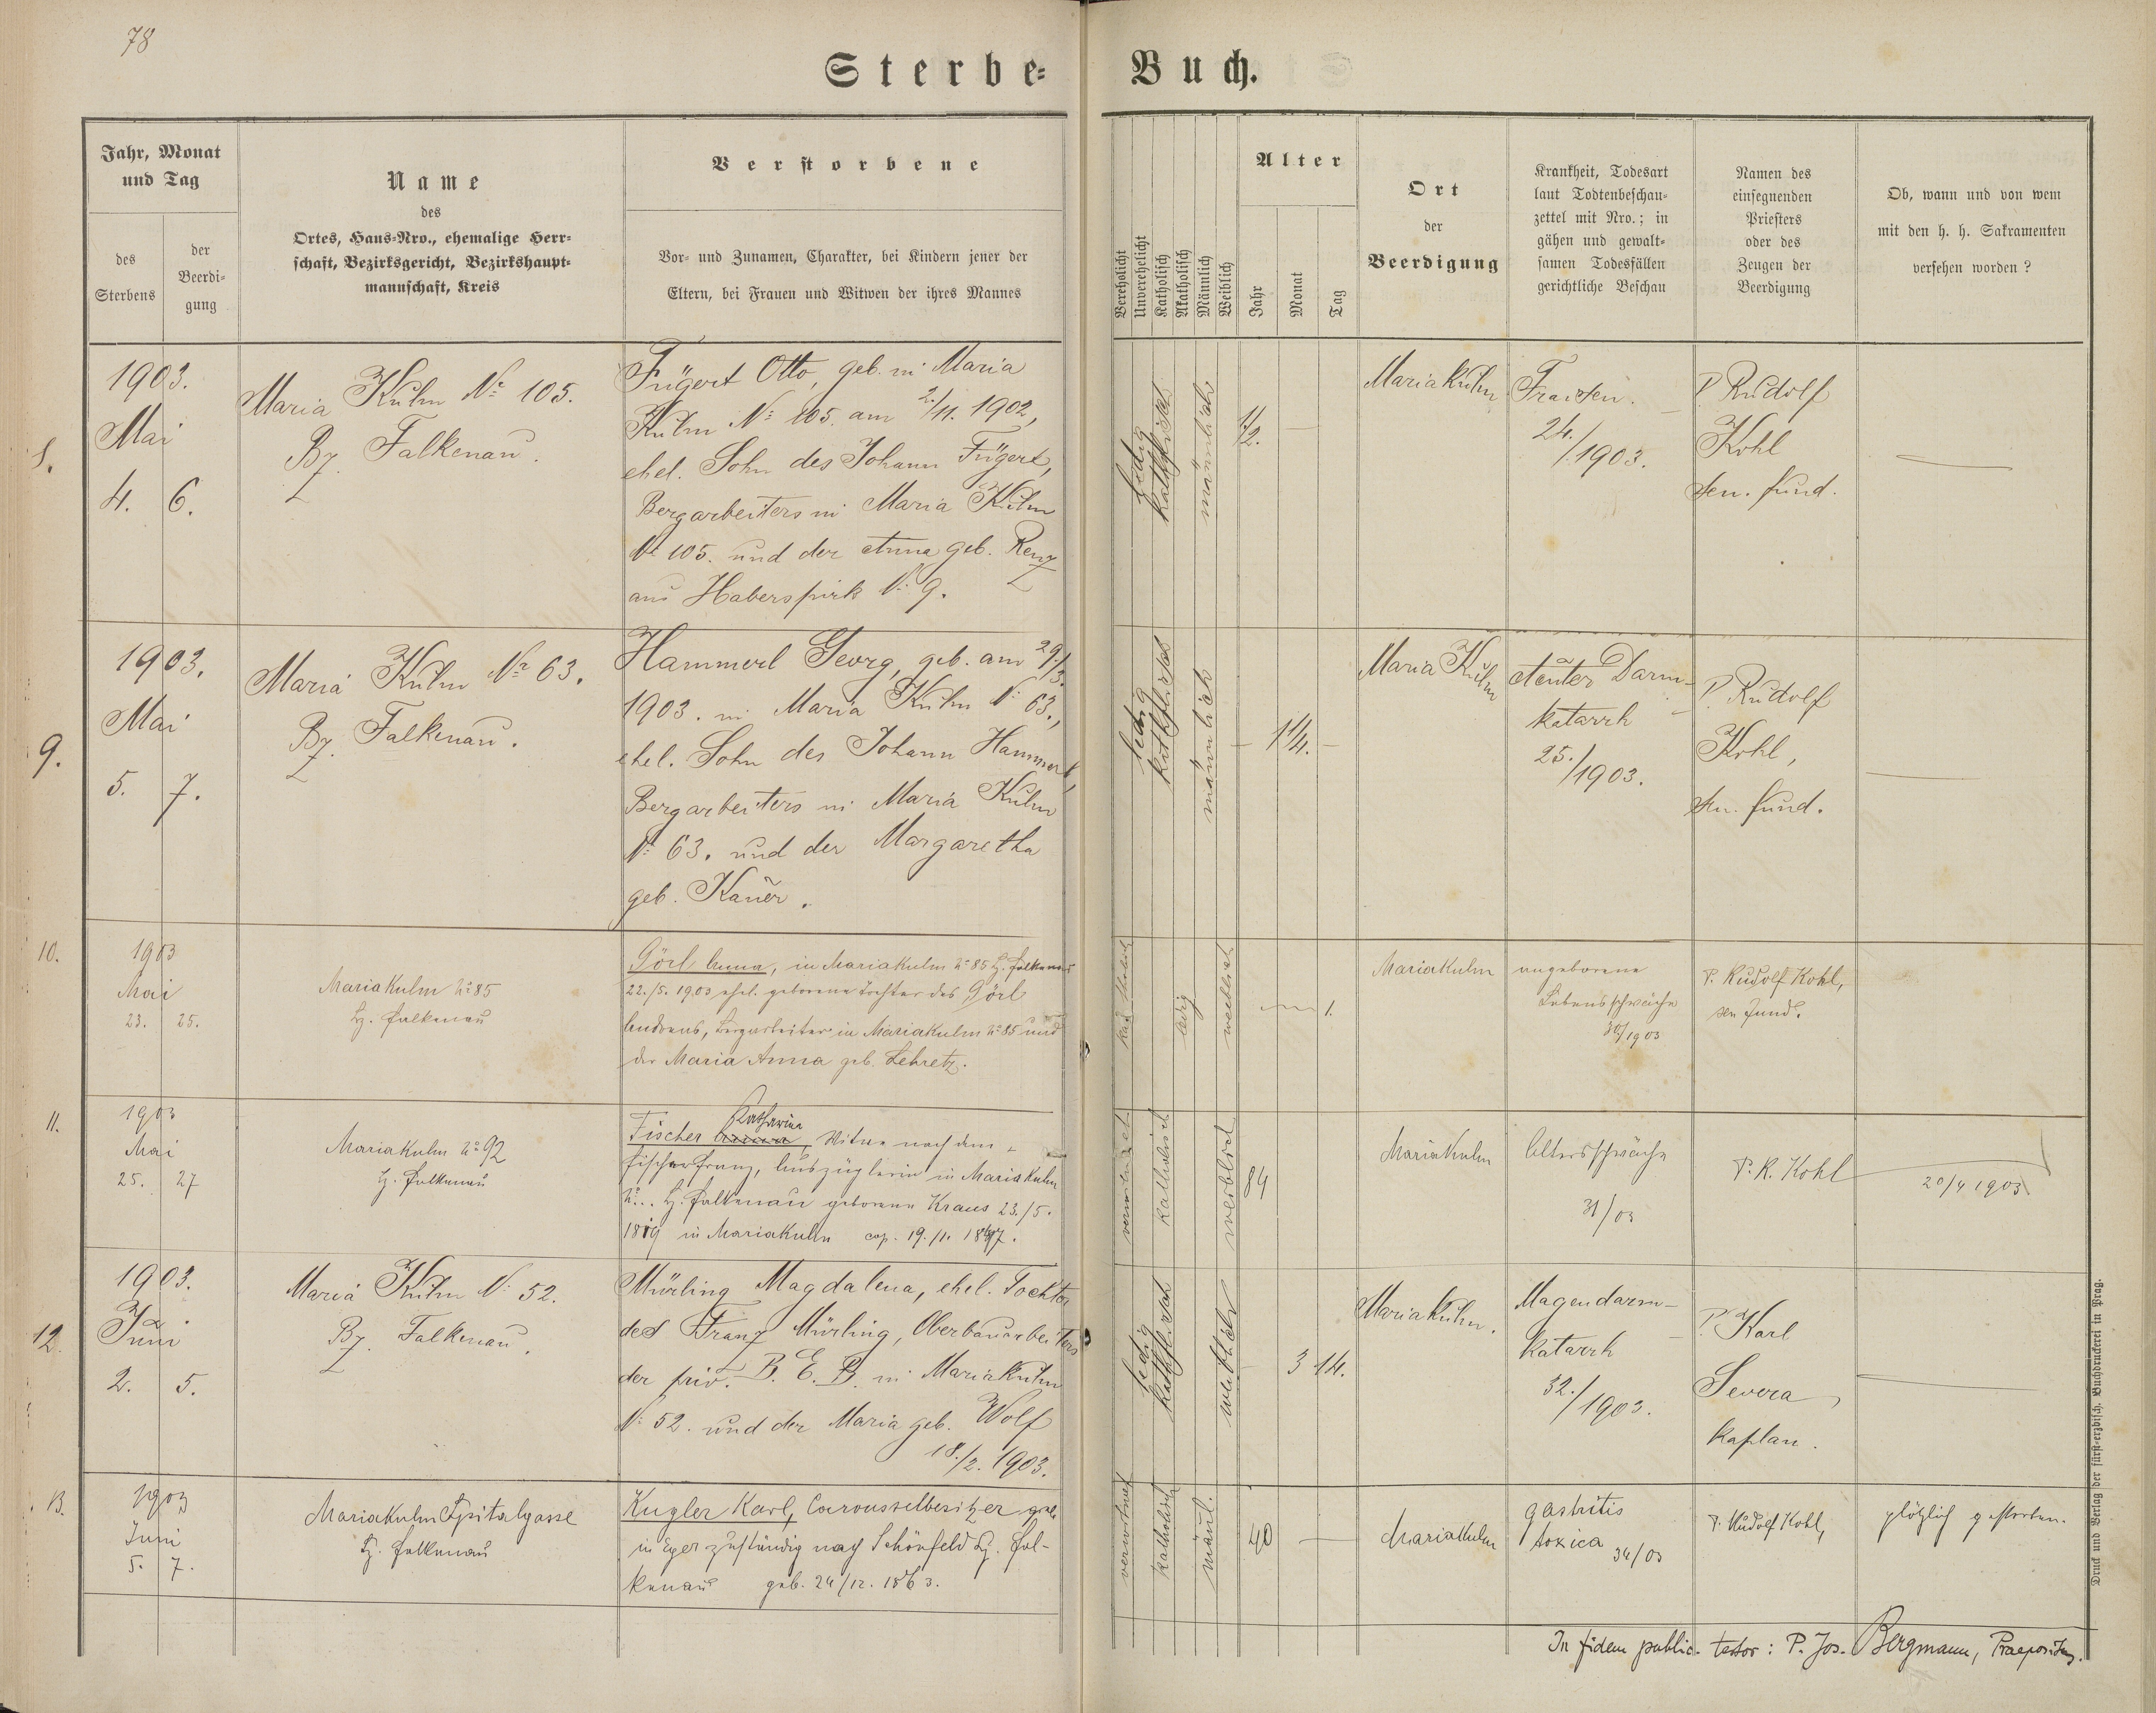 78
Sterbe-
Buch.
Jahr, Monat
und Tag
des
Sterbens
der
Beerdi-
gung
Name
des
Ortes, Haus-Nro., ehemalige Herr-
schaft, Bezirksgericht, Bezirkshaupt-
mannschaft, Kreis
Verstorbene
Vor- und Zunamen, Charakter, bei Kindern jener der
Eltern, bei Frauen und Witwen der ihres Mannes
Verehelicht
Unverehelicht
Katholisch
Akatholisch
Männlich
Weiblich
Alter
Jahr
Monat
Tag
Ort
der
Beerdigung
Krankheit, Todesart
laut Todtenbeschau-
zettel mit Nro.; in
gähen und gewalt-
samen Todesfällen
gerichtliche Beschau
Namen des
einsegnenden
Priesters
oder des
Zeugen der
Beerdigung
Ob, wann und von wem
mit den h. h. Sakramenten
versehen worden?
8.
1903.
Mai
4. 6.
Maria Kulm Nº 105.
Bz. Falkenau.
Fügert Otto, geb. in Maria
Kulm Nº 105. am 2./11. 1902,
ehel. Sohn des Johann Fügert,
Bergarbeiters in Maria Kulm
Nº 105. und der Anna geb. Renz
aus Haberspirk Nº 9.
ledig
katholisch
männlich
1/2.
Maria Kulm
Fraisen.
24./1903.
P. Rudolf
Kohl
sen. fund.
9.
1903.
Mai
5. 7.
Maria Kulm Nº 63.
Bz. Falkenau.
Hammerl Georg, geb. am 29./3.
1903. in Maria Kulm Nº 63.,
ehel. Sohn des Johann Hammerl,
Bergarbeiters in Maria Kulm
Nº 63. und der Margaretha
geb. Kauer.
ledig
katholisch
männlich
1 1/4.
Maria Kulm
Akuter Darm-
katarrh
25./1903.
P. Rudolf
Kohl,
sen. fund.
10.
1903
Mai
23. 25.
Maria Kulm Nº 85
Bz. Falkenau
Görl Anna, in Maria Kulm Nº 85 Bz. Falkenau
22./5. 1903 ehel. geborene Tochter des Görl
Andreas, Bergarbeiter in Maria Kulm Nº 85 und
der Maria Anna geb. Lehretz.
katholisch
ledig
weiblich
1.
Maria Kulm
angeborene
Lebensschwäche
30/1903
P. Rudolf Kohl,
sen fund.
11.
1903
Mai
25. 27
Maria Kulm Nº 92
Bz. Falkenau
Katharina
Fischer Anna, Witwe nach dem
Fischer Franz, Auszüglerin in Maria Kulm
Nº.. Bz. Falkenau geborene Kraus 23./5.
1819 in Maria Kulm cop. 19./11. 1847.
verwitwet
katholisch
weiblich
84
Maria Kulm
Altersschwäche
31/03
P. R. Kohl
20/4 1903
12.
1903.
Juni
2. 5.
Maria Kulm Nº 52.
Bz. Falkenau.
Mürling Magdalena, ehel. Tochter
des Franz Mürling, Oberbauarbeiters
der priv. B. E. B. in Maria Kulm
Nº 52. und der Maria geb. Wolf
18./2. 1903.
ledig
katholisch
weiblich
3 14.
Maria Kulm.
Magendarm-
katarrh
32./1903.
P. Karl
Severa,
Kaplan.
13.
1903
Juni
5. 7.
Maria Kulm Spitalgasse
Bz. Falkenau
Kugler Karl, Carousselbesitzer geb.
in Eger zuständig nach Schönfeld Bz. Fal-
kenau geb. 24/12. 1863.
verwitwet
katholisch
mänl.
40
Maria Kulm
gastritis
toxica 34/03
P. Rudolf Kohl,
plötzlich gestorben.
In fidem public. testor: P. Jos. Bergmann, Praepositus.
Druck und Verlag der fürst-erzbisch. Buchdruckerei in Prag.